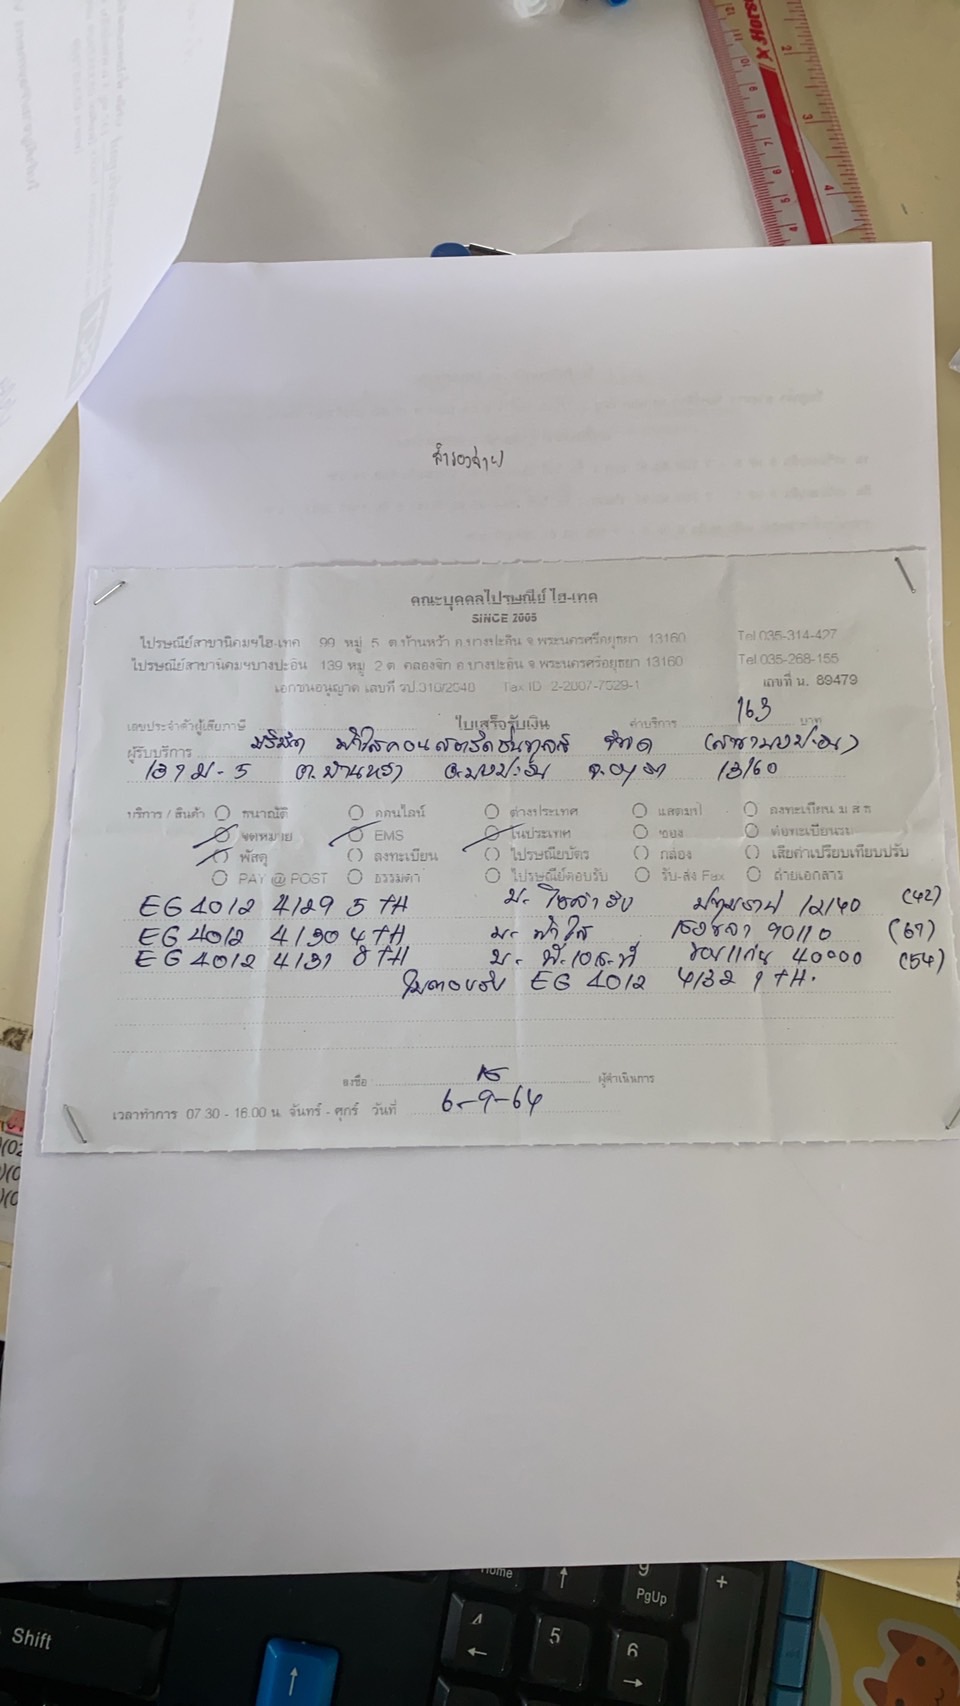 สำรองจ่าย
คณะบุคคลไปรษณีย์ ไฮ-เทค
SINCE 2005
ไปรษณีย์สาขานิคมฯไฮ-เทค 99 หมู่ 5 ต.บ้านหว้า อ.บางปะอิน จ.พระนครศรีอยุธยา 13160 Tel.035-314-427
ไปรษณีย์สาขานิคมฯบางปะอิน 139 หมู่ 2 ต. คลองจิก อ.บางปะอิน จ.พระนครศรีอยุธยา 13160 Tel.035-268-155
เอกชนอนุญาต เลขที่ รป.310/2548 Tax ID 2-2007-7529-1 เลขที่ น. 89479
เลขประจำตัวผู้เสียภาษี ใบเสร็จรับเงิน ค่าบริการ 163 บาท
ผู้รับบริการ บริษัท จำกัด (สาขาบางปะอิน)
ม.5 ต.บ้านหว้า อ.บางปะอิน จ.อยุธยา 13160
บริการ / สินค้า ธนาณัติ ออนไลน์ ต่างประเทศ แสตมป์ ลงทะเบียน ม ส ธ
จดหมาย EMS ในประเทศ ซอง ต่อทะเบียนรถ
พัสดุ ลงทะเบียน ไปรษณียบัตร กล่อง เสียค่าเปรียบเทียบปรับ
PAY @ POST ธรรมดา ไปรษณีย์ตอบรับ รับ-ส่ง Fax ถ่ายเอกสาร
EG 4012 4129 5 TH ปทุมธานี 12140 (42)
EG 4012 4130 4 TH สงขลา 90110 (67)
EG 4012 4131 8 TH ขอนแก่น 40000 (54)
ใบตอบรับ EG 4012 4132 1 TH.
ลงชื่อ ผู้ดำเนินการ
เวลาทำการ 07.30 - 16.00 น. จันทร์ - ศุกร์ วันที่ 6-9-64
Shift
Home
9
PgUp
+
4
5
6